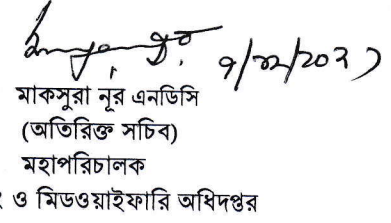 ৭/১২/২০২১
মাকসুরা নূর এনডিসি
(অতিরিক্ত সচিব)
মহাপরিচালক
ও মিডওয়াইফারি অধিদপ্তর